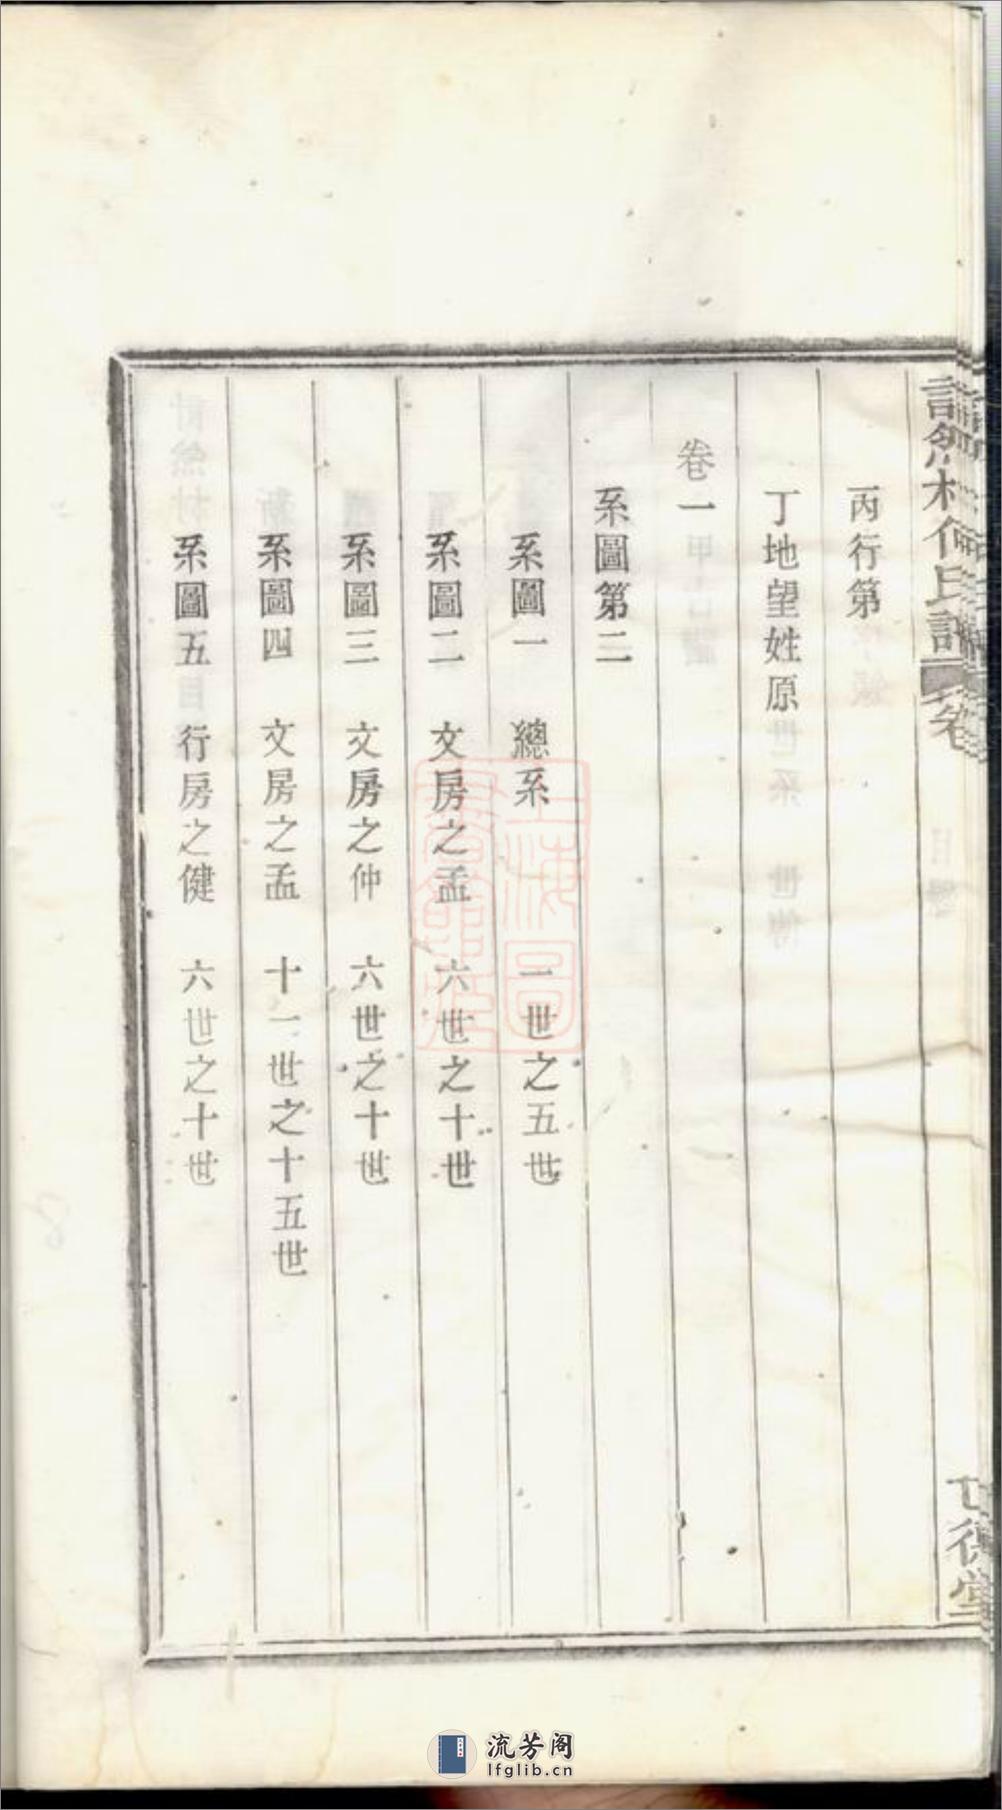 丙行第
丁地望姓原
卷一
系圖第二
系圖一　總系　一世之五世
系圖二　文房之孟　六世之十世
系圖三　文房之仲　六世之十世
系圖四　文房之孟　十一世之十五世
系圖五　行房之健　六世之十世
上海圖
流芳阁
lfglib.cn